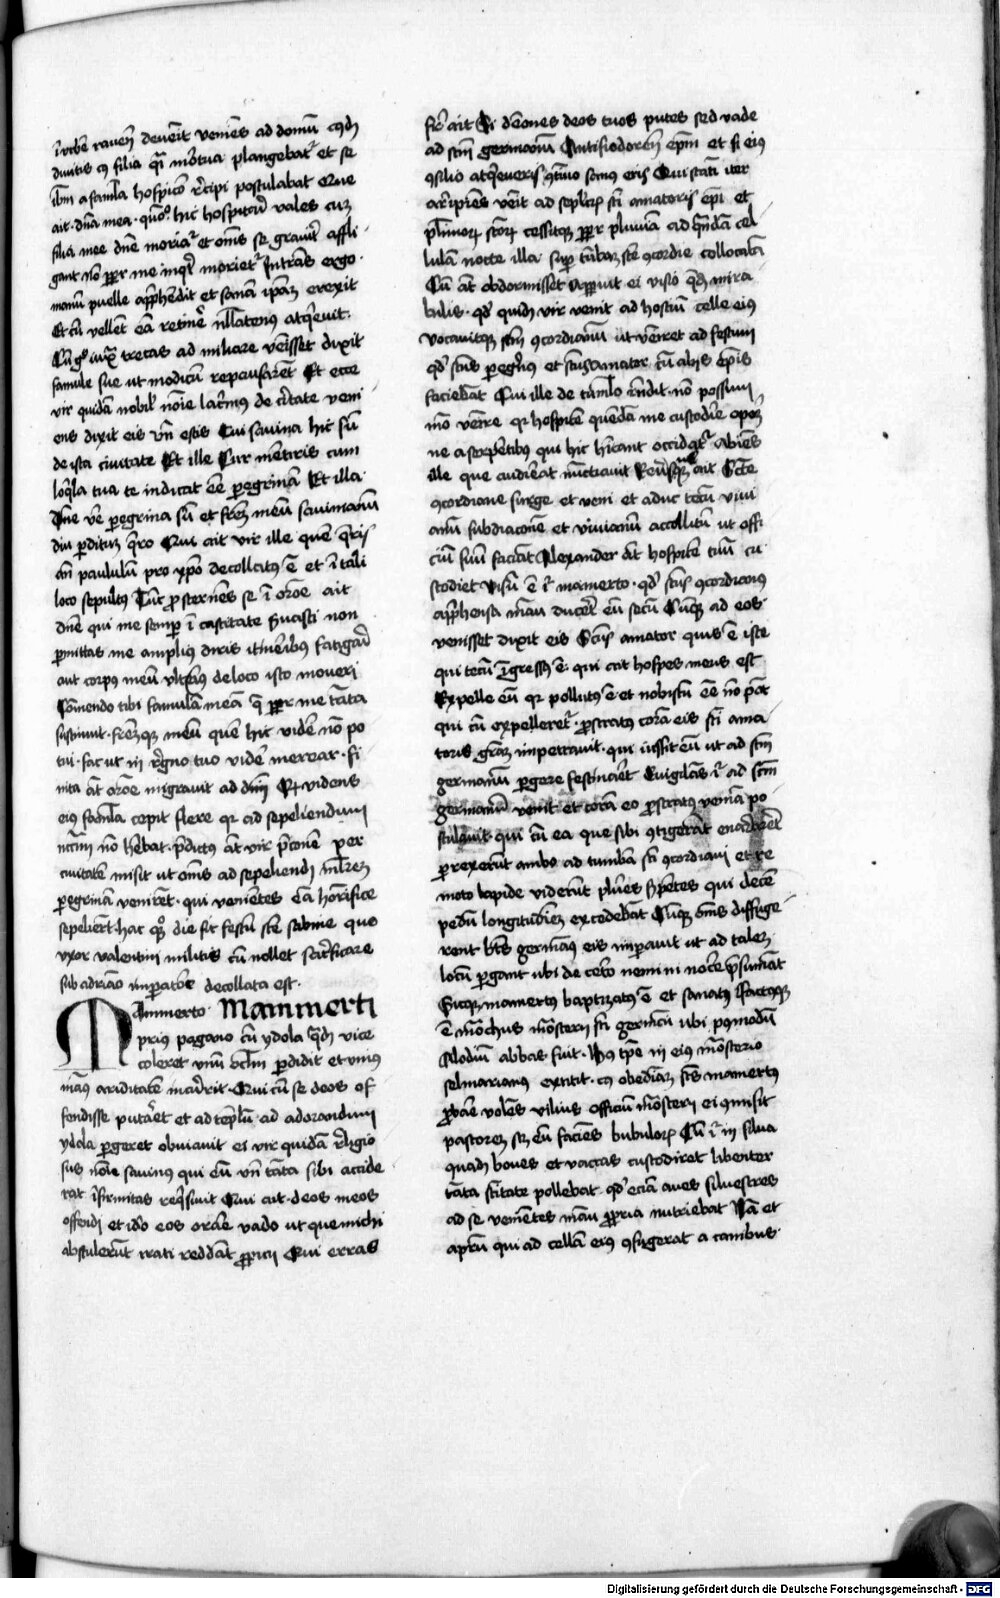 in urbē ravenn̄ devenit veniēs ad domū cuiusdā
divitis cuius filia quasi mortua plangebatᷣ et se
ibm̄ a famula hospicio recipi postulabat Que
ait · dn̄a mea · quō hic hospitari vales cum
filia mee dn̄e moriatᷣ et om̄s se graviter affli-
gant Non propter me inquit morietᷣ Intrans ergo
manum puelle apprehendit et sanam ipam erexit
Et cū vellent eā retinere nullatenus adquievit ·
Cū gͦ iuxta trecas ad miliare venisset dixit
famule sue ut modicū repausarent Et ecce
vir quidam nobilis nōie licerius de civitate veni
ens dixit eis Vn̄ estis Cui savina hic sum
de ista civitate Et ille Cur mentiris cum
loquela tua te indicat eē peregrinam Et illa
Dn̄e vere peregrina sū et frēm meū savinianum
diu perditum quero Cui ait vir ille quē queris
an̄ paululum pro xpō decollatus ē et in tali
loco sepultus Tūc prosternens se ī orōe ait
dn̄e qui me semper ī castitate servasti non
permittas me amplius duris itineribus fatigari
aut corpus meū ulterius de loco isto moveri
Cōmendo tibi famulam meā que propter me tanta
sustinuit · frēmque meum quē hic videre nō po
tui · fac ut in regno tuo videre merear · fi
nita at orōe migravit ad dn̄m Qd̄ videns
eius famula cepit flere quia ad sepeliendum
necessarium nō habebat · predictus at vir preconē per
civitatē misit ut om̄s ad sepeliendā mulierem
peregrinam venirent · qui venientes eā honorifice
sepelierunt · hac quoque die fit festum sancte sabine que
uxor valentini militis cū nollet sacrificare
sub adriano imperatore decollata est ·
Mammerto Mammerti
prius pagano cū ydola quadam vice
coleret unū oclm̄ perdidit et unius
manus ariditatē incurrit · Qui cū se deos of
fendisse putaret et ad templum ad adorandum
ydola pergeret obviavit ei vir quidā religio
sus nōie savinus qui eū un̄ tanta sibi accide
rat infirmitas requisivit Qui ait · deos meos
offendi et ideo eos orare vado ut que michi
abstulerunt irati reddāt propicii Cui erras
frater ait Si demones deos tuos putes sed vade
ad scm̄ germanum Antisiodorensem ep̄m et si eius
consilio adquieveris continuo sanus eris Qui statim iter
arripiens venit ad sepulcrum scī amatoris ep̄i et
plurimorum sanctorum cessitque propter pluviam ad quandā cel
lulam nocte illa super tumbam sancte concordie collocatam
Cū at obdormisset apparuit ei visio quedam mira
bilis · quod quidam vir venit ad hostium celle eius
vocavitque scm̄ concordianum ut veniret ad festum
quod scūs peregrinus et scūs amator cū aliis ep̄is
faciebat Cui ille de tumulo respondit · nō possum
modo venire quia hospitem quendā me custodire oportet
ne a serpentibus qui hic habitant occidatᷣ Abiens
ille que audierat nunctiavit Reversusque ait Sancte
concordiane surge et veni et adduc tecū vivi
anū subdiaconē et vivianū accolitum ut offi
cium suū faciant Alexander at hospitē tuū cu
stodiet Visum ē igitur mamerto · quod scūs concordianus
apprehensa manu duceret eū secū Cūque ad eos
venisset dixit eis Scūs amator quis ē iste
qui tecū ingressus ē · qui ait hospes meus est
Expelle eū quia pollutus ē et nobiscum eē nō potest
qui cū expelleretᷣ · prostratus coram eis scī ama
toris gratiam impetravit · qui iussit eū ut ad scm̄
germanum pergere festinaret Evigilans igitur ad scm̄
germanum venit et coram eo prostratus veniam po
stulavit qui cū ea que sibi contigerāt enarraret
perrexerūt ambo ad tumbam scī concordiani et re
moto lapide viderunt plures serpentes qui decē
pedum longitudinem excedebāt Cūque om̄s diffuge
rent btūs germanus eis imperavit ut ad talem
locū pergant ubi de cetero nemini nocere presumāt
Sicque mamertus baptizatus ē et sanatus Factusque
ē monachus monasterii scī germani ubi postmodum
Alodium abbas fuit · Hoc tempore in eius monasterio
selmarianus extitit · cuius obedientiam scūs mamertus
probare volens vilius officium monasterii ei iniunxit
pastorem scilicet eum faciens bubulorum Cū igitur in silva
quadam boves et vaccas custodiret libenter
tanta sanctitate pollebat · quod etiam aves silvestres
ad se venientes manu propria nutriebat Nam et
aprum qui ad cellam eius confugerat a canibus
Digitalisierung gefördert durch die Deutsche Forschungsgemeinschaft - DFG